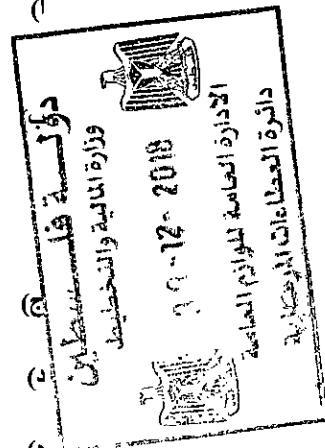 دولة فلسطين
وزارة المالية والتخطيط
12- 2018
الادارة العامة للوازم العامة
دائرة العطاءات المركزية